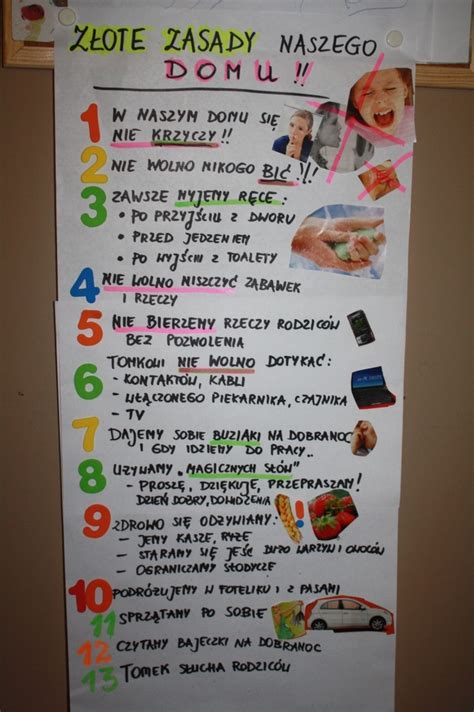 ZŁOTE ZASADY NASZEGO
DOMU !!
1 W NASZYM DOMU SIĘ
NIE KRZYCZY !!
2 NIE WOLNO NIKOGO BIĆ !!!
3 ZAWSZE MYJEMY RĘCE:
• PO PRZYJŚCIU Z DWORU
• PRZED JEDZENIEM
• PO WYJŚCIU Z TOALETY
4 NIE WOLNO NISZCZYĆ ZABAWEK
I RZECZY
5 NIE BIERZEMY RZECZY RODZICÓW
BEZ POZWOLENIA
6 TOMKOWI NIE WOLNO DOTYKAĆ:
- KONTAKTÓW, KABLI
- WŁĄCZONEGO PIEKARNIKA, CZAJNIKA
- TV
7 DAJEMY SOBIE BUZIAKI NA DOBRANOC
I GDY IDZIEMY DO PRACY..
8 UŻYWAMY „MAGICZNYCH SŁÓW"
- PROSZĘ, DZIĘKUJĘ, PRZEPRASZAM!
DZIEŃ DOBRY, DOWIDZENIA
9 ZDROWO SIĘ ODŻYWIAMY:
- JEMY KASZE, RYŻE
- STARAMY SIĘ JEŚĆ DUŻO WARZYW I OWOCÓW
- OGRANICZAMY SŁODYCZE
10 PODRÓŻUJEMY W FOTELIKU I Z PASAMI
11 SPRZĄTAMY PO SOBIE
12 CZYTAMY BAJECZKI NA DOBRANOC
13 TOMEK SŁUCHA RODZICÓW